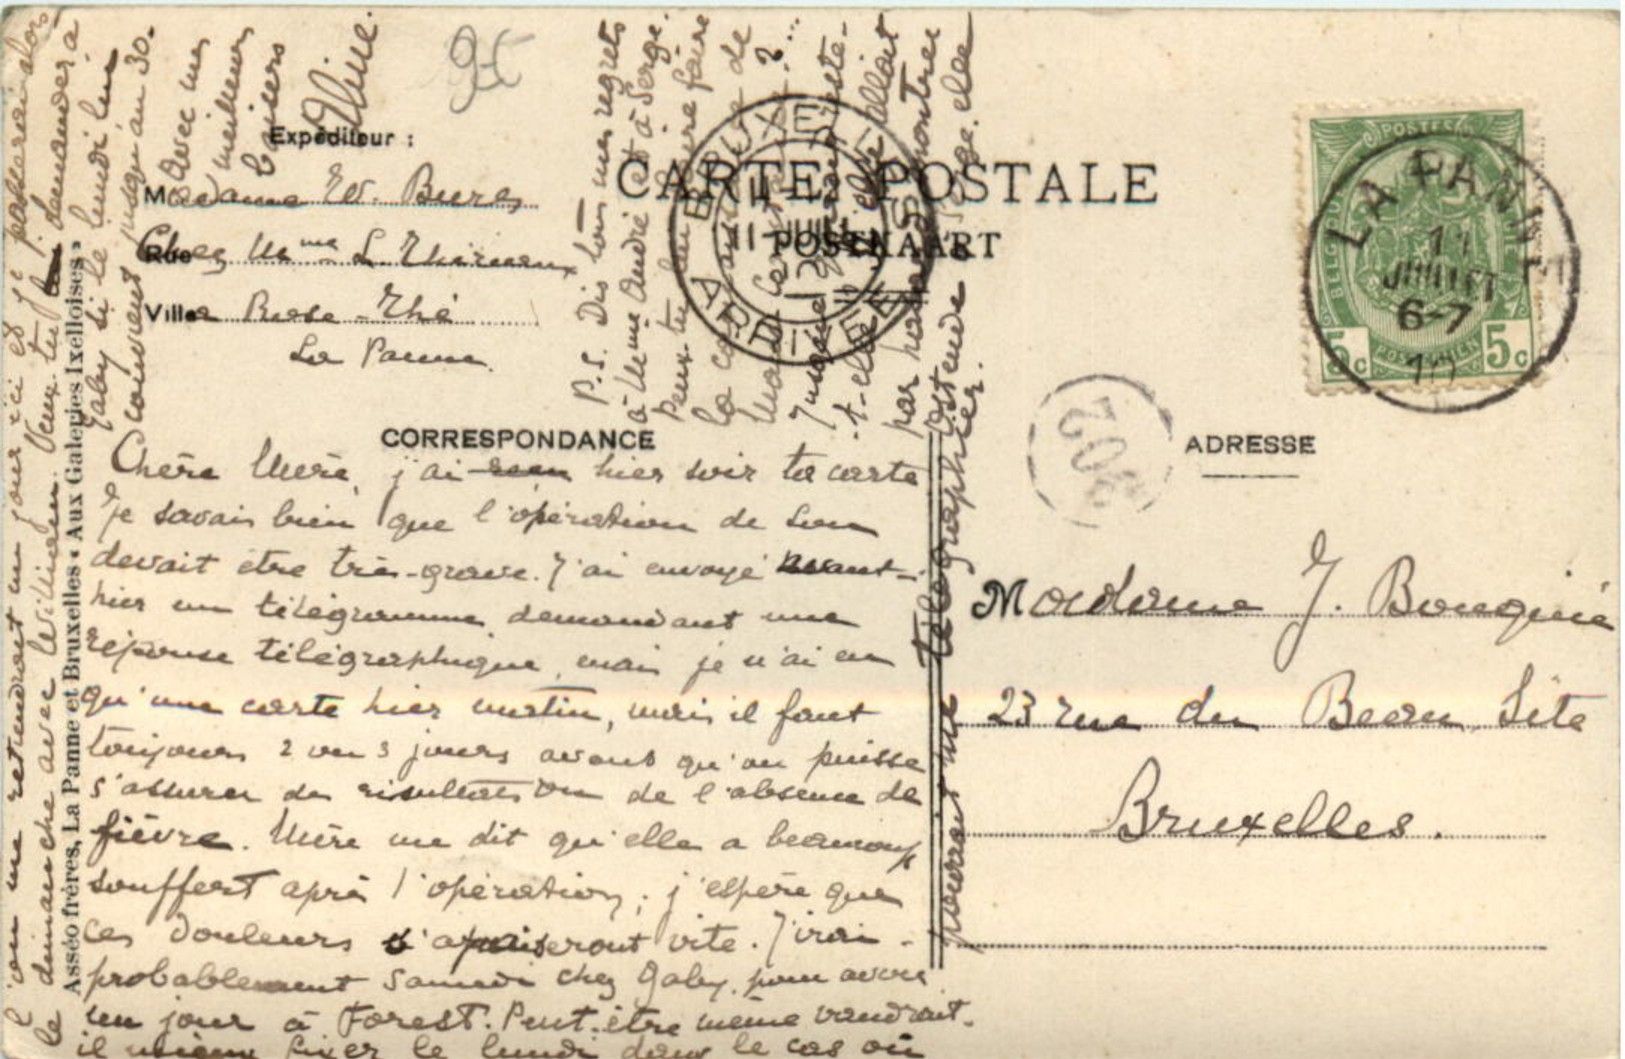 CARTE POSTALE
POSTKAART
Expéditeur :
Madame W. Bures
Rue Chez Mme L.
Ville Rose-Thé
La Panne
CORRESPONDANCE
Chère Mère, j'ai hier soir ta carte
Je savais bien que l'opération de
devait être très-grave. J'ai envoyé avant-
hier un télégramme demandant une
réponse télégraphique, mais je n'ai eu
qu'une carte hier matin, mais il faut
toujours 2 ou 3 jours avant qu'on puisse
s'assurer des résultats ou de l'absence de
fièvre. Mère me dit qu'elle a beaucoup
souffert après l'opération; j'espère que
ces douleurs s'apaiseront vite. J'irai
probablement samedi chez Gaby, pour avoir
un jour à Forest. Peut-être même vaudrait-
il mieux fixer le lundi dans le cas où
l'on me retiendrait un jour ici et je passerais alors
le dimanche avec William. Veux-tu demander à
Gaby si le lundi lui
convient jusqu'au 30.
Avec mes
meilleurs
baisers
P.S. Dis tous mes regrets
à Mme André et à Serge.
Peux-tu lui faire
la de
?...
J
t-elle allait
par montrer
Ostende
pourrait me télégraphier.
Asséo frères, La Panne et Bruxelles « Aux Galeries Ixelloises »
BRUXELLES
11 JUIL
ARRIVEE
POSTES
BELGIQUE
POSTERIJEN
5c 5c
LA PANNE
11
JUILLET
6-7
10
ADRESSE
Madame J. Bouquié
23 rue du Beau Site
Bruxelles.